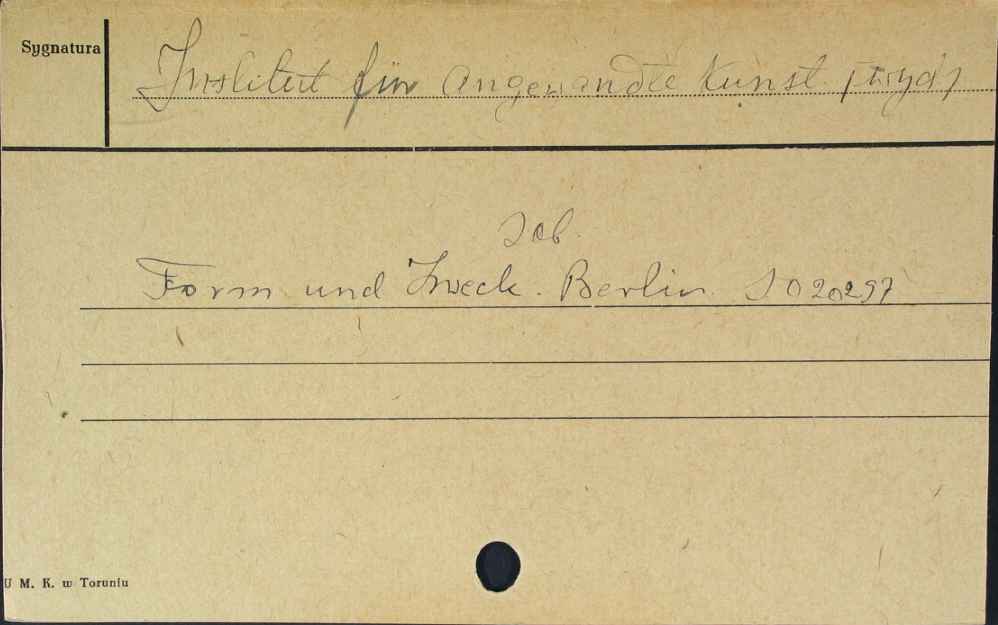 Sygnatura
Institut für angewandte Kunst /wyd/
Zob.
Form und Zweck. Berlin. J 020297
U M. K. w Toruniu